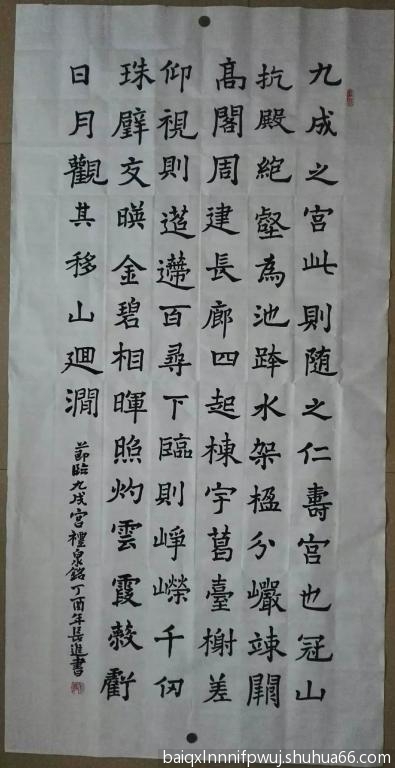 九成之宮此則随之仁壽宮也冠山
抗殿絕壑為池跨水架楹分巖竦闕
高閣周建長廊四起棟宇葛臺榭差
仰視則迢遰百尋下臨則崢嶸千仞
珠璧交暎金碧相暉照灼雲霞蔽虧
日月觀其移山廻澗
節臨九成宮禮泉銘丁酉年長進書
baiqxlnnnifpwuj.shuhua66.com